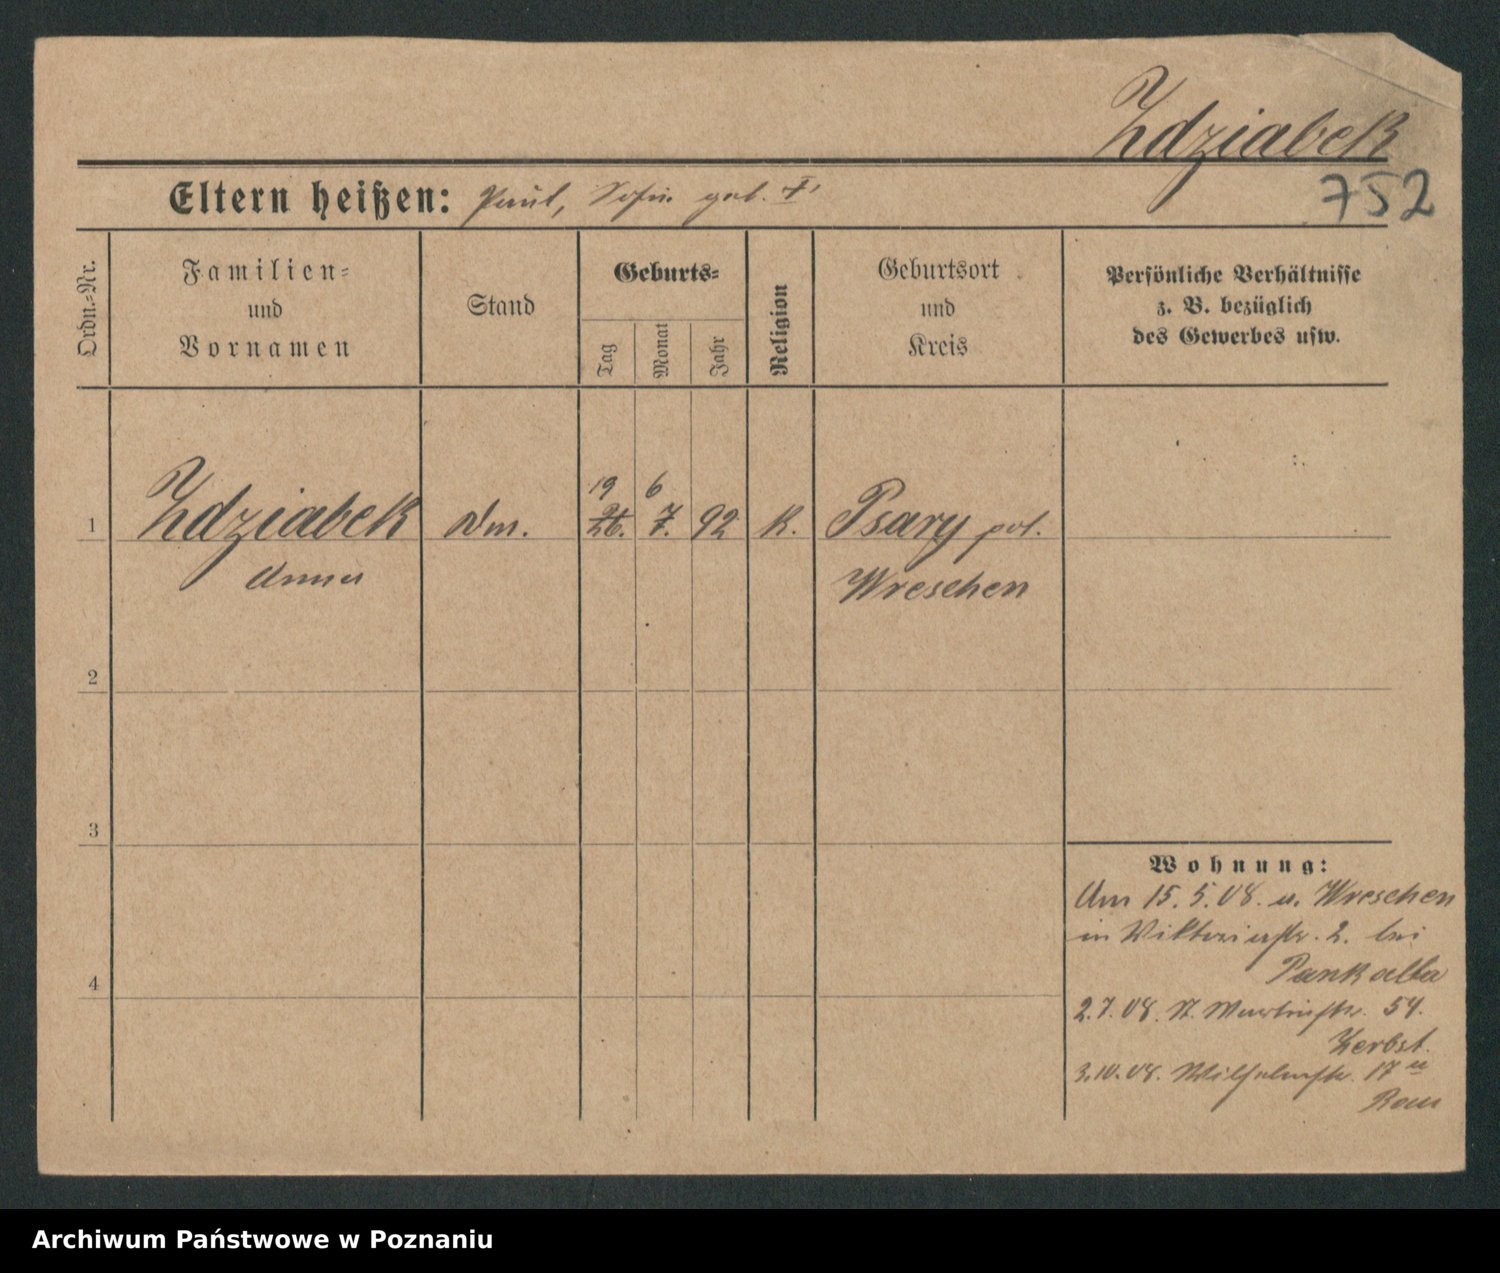 Zdziabek
752
Eltern heißen: Paul, Sofia geb. F
Ordn.-Nr.
Familien-
und
Vornamen
Stand
Geburts-
Tag
Monat
Jahr
Religion
Geburtsort
und
Kreis
Persönliche Verhältnisse
z. B. bezüglich
des Gewerbes usw.
19 6
1 Zdziabek Dm. 26. 7. 92 K. Psary pol.
Anna Wreschen
2
3
Wohnung:
Am 15.5.08. v. Wreschen
in Viktoriastr. 2. bei
Pankalla
4
2.7.08. St. Martinstr. 54.
Zerbst.
3.10.08. Wilhelmstr. 17 II
Rau
Archiwum Państwowe w Poznaniu